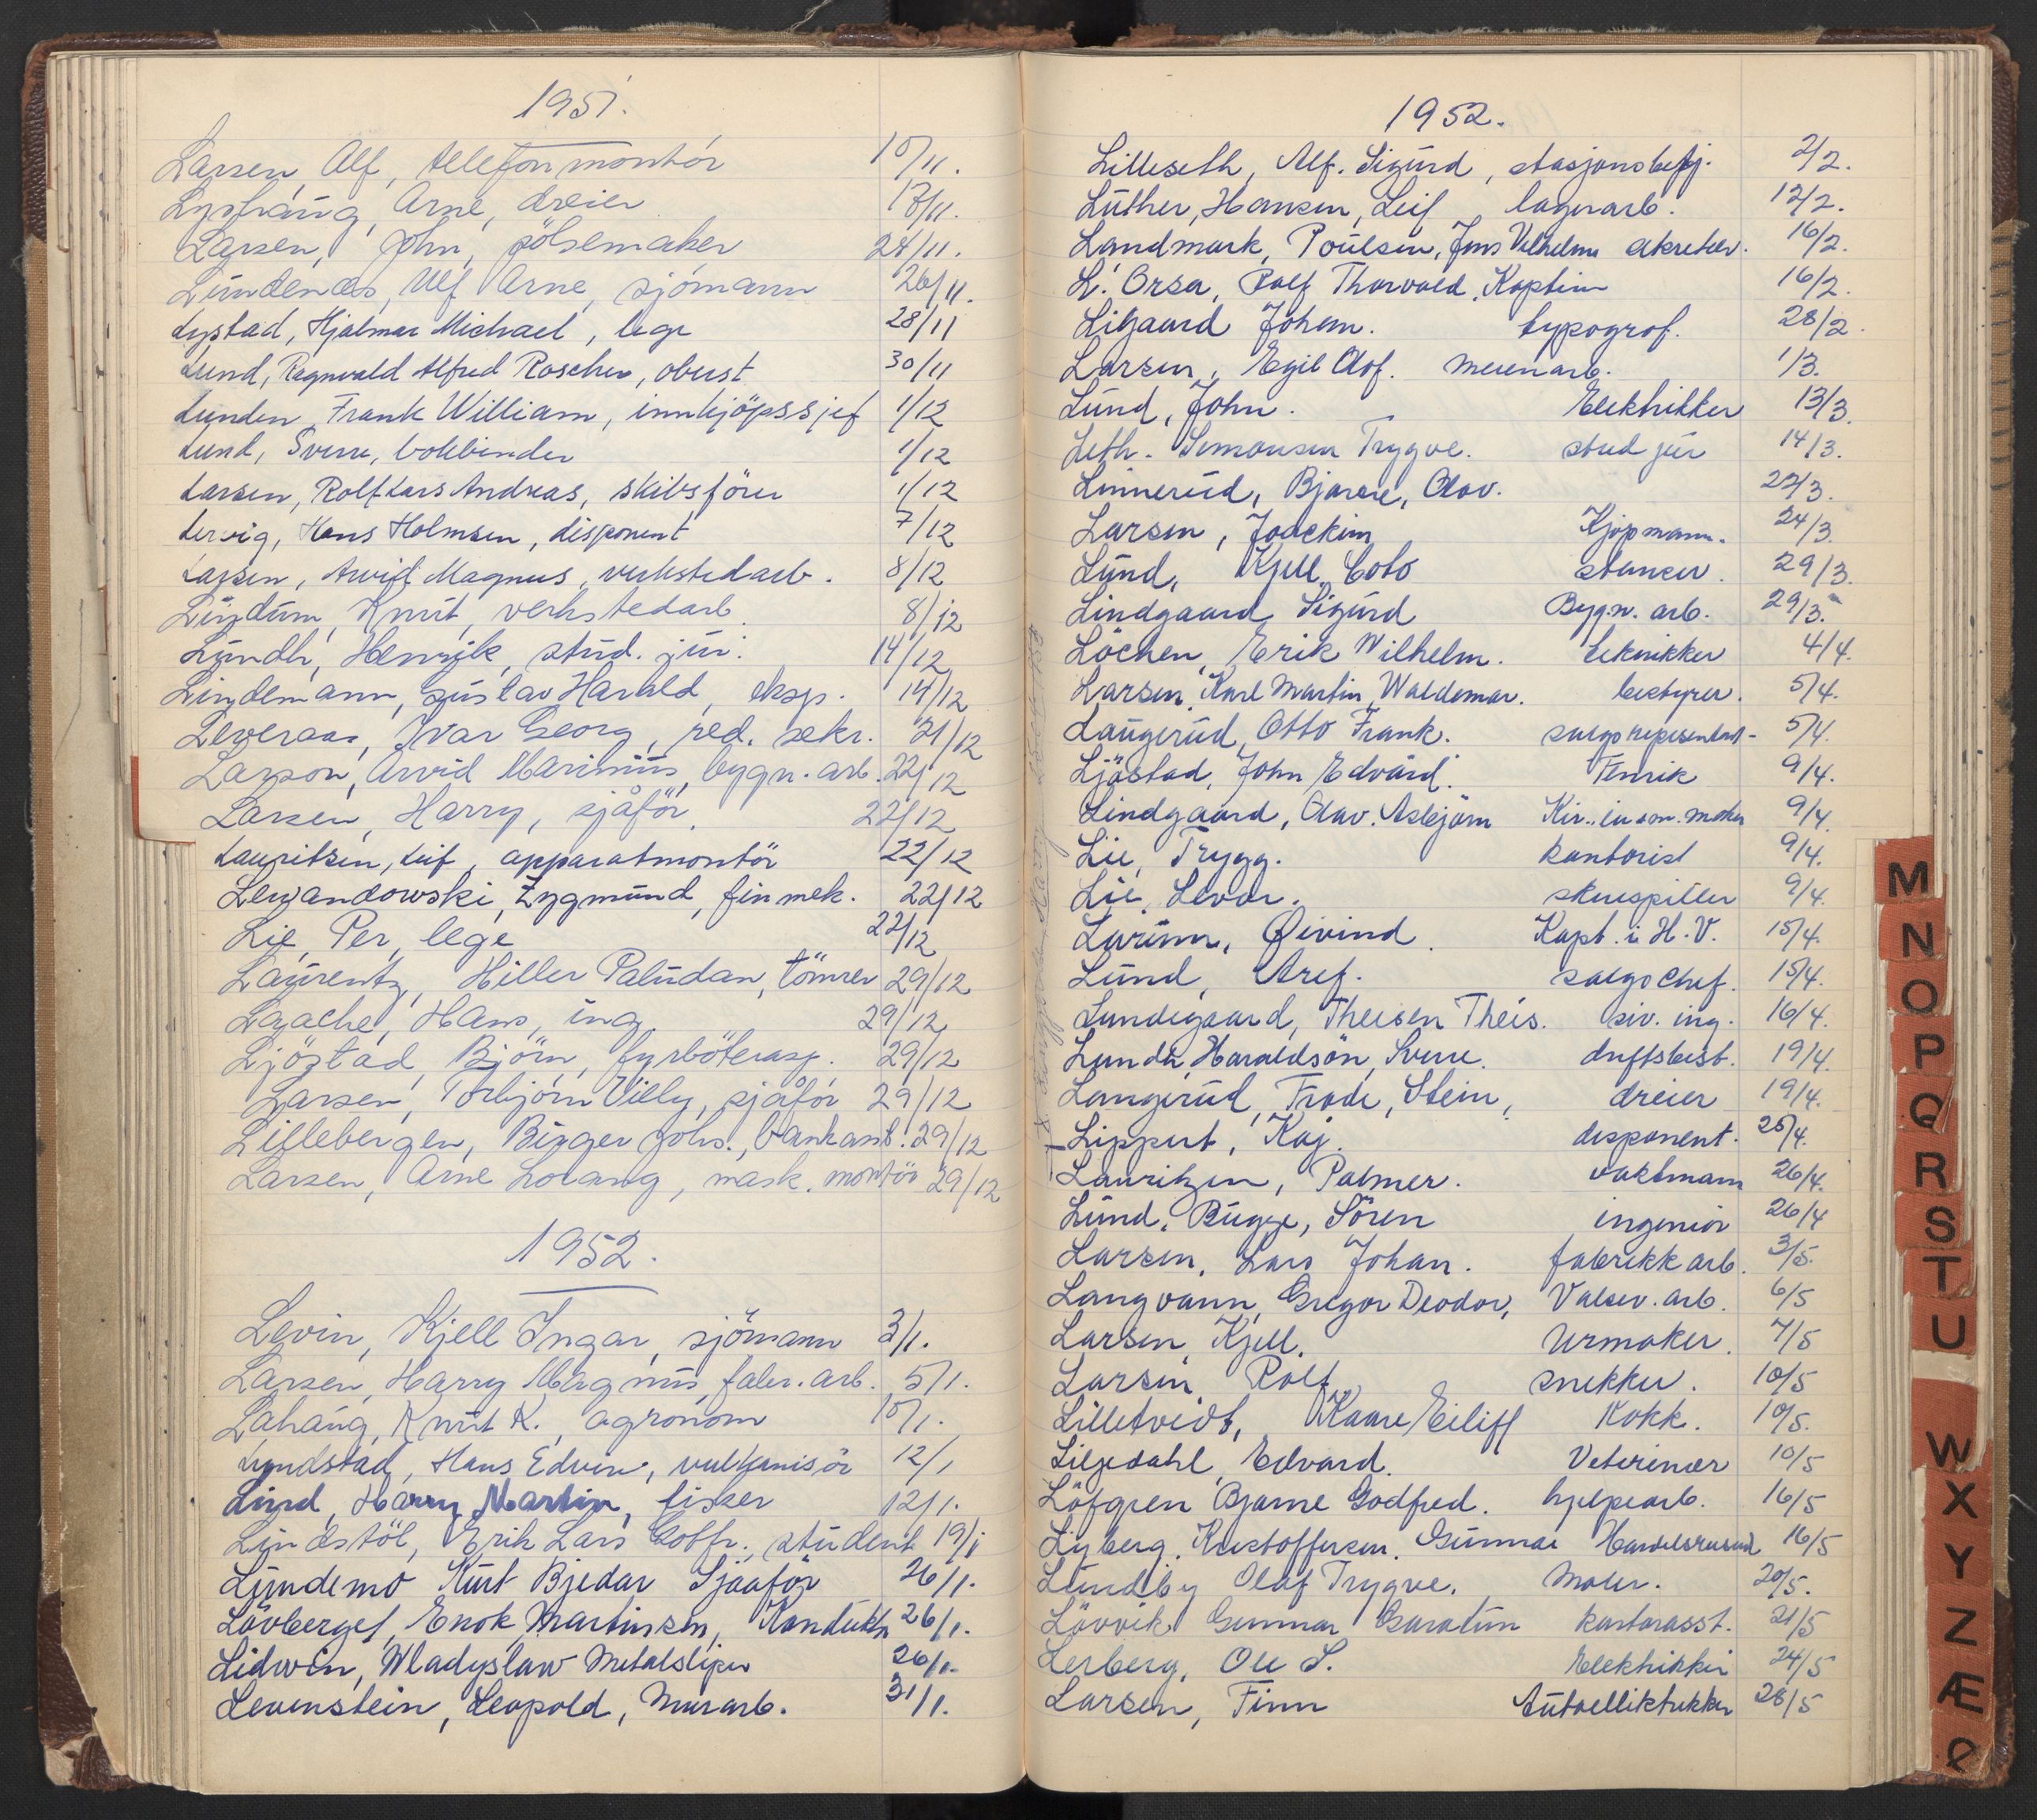 1951.
Larsen, Alf, telefonmontör 10/11.
Lyshaug, Arne, dreier 17/11.
Larsen, John, pölsemaker 24/11.
Lundenæs, Ulf Arne, sjömann 26/11.
Lystad, Hjalmar Michael, lege 28/11
Lund, Ragnvald Alfred Roscher, oberst 30/11
Lunden Frank William, innkjöpssjef 1/12
Lund, Sverre, bokbinder 1/12
Larsen, Rolf Lars Andreas, skibsförer 1/12
Lervig, Hans Holmsen, disponent 7/12
Larsen, Arvid Magnus, verkstedarb. 8/12
Lindum, Knut, verkstedarb. 8/12
Lundh, Henrik, stud. jur. 14/12
Lindemann, Gustav Harald, eksp. 14/12
Leveraas, Ivar Georg, red. sekr. 21/12
Larson, Arvid Marinius, bygn. arb. 22/12
Larsen, Harry, sjåför. 22/12
Lauritzen, Leif, apparatmontör 22/12
Lewandowski, Zygmund, finmek. 22/12
Lie, Per, lege 22/12
Laurentz, Hiller Paludan, tömrer 29/12
Laache, Hans, ing. 29/12
Ljöstad, Björn, fyrböterasp. 29/12
Larsen, Torbjörn Villy, sjåför 29/12
Lillebergen, Birger Johs., bankass. 29/12
Larsen, Arne Lorang, mask. montör 29/12
1952.
Levin, Kjell Ingar, sjömann 3/1.
Larsen, Harry Magnus, fabr. arb. 5/1.
Lahaug, Knut K., agronom 10/1.
Lundstad, Hans Edvin, vulkanisör 12/1
Lund, Harry Martin, fisker 12/1.
Lindstöl, Erik Lars Gotfr., student 19/1
Lundemo Kurt Bjedar Sjaaför 26/1.
Lövberget, Enok Martinsen, Konduktr 26/1.
Lidwin, Wladyslaw Metalsliper 26/1.
Levenstein, Leopold, Murarb. 31/1.
1952.
Lilleseth, Alf. Sigurd, stasjonsbetj. 2/2.
Luther, Hansen, Leif lagerarb. 12/2.
Landmark, Poulsen, Jens Vilhelm sekretær. 16/2.
L'. Orsa, Rolf Thorvald, Kaptein 16/2.
Ligaard Johan. typograf. 28/2.
Larsen, Egil Olof. meieriarb. 1/3.
Lund, John. Elektrikker 13/3.
Leth. Simonsen Trygve. stud jur 14/3.
Linnerud, Bjarne, Olav. 22/3.
Larsen, Joackim Kjöpmann. 24/3.
Lund, Kjell Coto stanser. 29/3.
Lindgaard Sigurd Bygn. arb. 29/3.
Löchen, Erik Wilhelm. teknikker 4/4.
Larsen, Karl Martin Waldemar. bestyrer. 5/4.
Laugerud, Otto Frank. salgsrepresentant 5/4.
Ljöstad, John Edvard. Fenrik 9/4.
Lindgaard, Olav. Asbjörn Kir. inson. maker 9/4.
Lie, Trygg. kontorist 9/4.
Lie, Levor. skuespiller 9/4.
Larum, Øivind. Kapt. i H.V. 15/4.
Lund, Aref. salgschef. 15/4.
Lundegaard, Theisen Theis. siv. ing. 16/4.
Lunde, Haraldsön, Sverre. driftsbest. 19/4.
Langerud, Frode, Stein, dreier 19/4.
Lippert, Kaj. disponent. 25/4.
Lauritzen, Palmer. vaktmann 26/4.
Lund, Bugge, Sören ingeniör 26/4
Larsen, Lars Johan. fabrikkarb. 3/5.
Langvann, Gregor Deodor, Valsev. arb. 6/5
Larsen, Kjell. Urmaker. 7/5
Larsen Rolf snekker. 10/5
Lilletvedt, Kaare Eiliff Kokk. 10/5.
Liljedahl, Edvard. Veterinær 10/5
Löfgren Bjarne Godfred. hjelpearb. 16/5
Lyberg. Kristoffersen. Gunnar Handelsreisend 16/5
Lundby Olaf Trygve. Maler. 20/5.
Lövvik Gunnar Garatun kontorasst. 21/5
Lerberg, Ole S. Elektrikker 24/5
Larsen, Finn Autoelliktrikker 26/5
M
N
O
P
Q
R
S
T
U
W
X
Y
Z
Æ